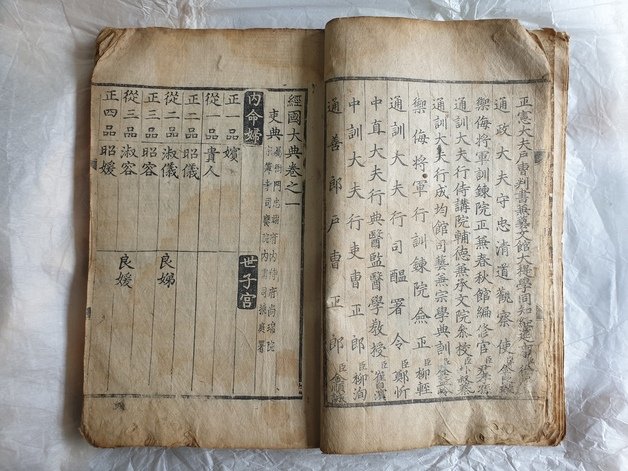 正憲大夫戶曹判書兼藝文館大提學同知經筵事臣
通政大夫守忠清道觀察使臣金
禦侮將軍訓鍊院正兼春秋館編修官臣
通訓大夫行侍講院輔德兼承文院參校臣
訓大夫行成均館司藝兼宗學典訓臣金
禦侮將軍行訓鍊院僉正臣柳輊
通訓大夫行司醞署令臣鄭忻
中直大夫行典醫監醫學教授臣崔
中訓大夫行吏曹正郎臣柳洵
通善郎戶曹正郎臣金
經國大典卷之一
吏典
內命婦 世子宮
正一品嬪
從一品貴人
正二品昭儀
從二品淑儀 良娣
正三品昭容
從三品淑容 良媛
正四品昭媛